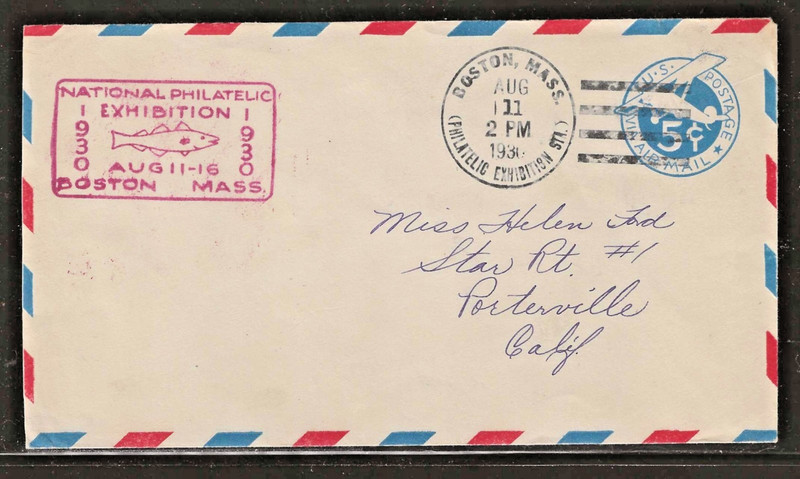 NATIONAL PHILATELIC
EXHIBITION
1930
1930
AUG 11-16
BOSTON MASS.
BOSTON, MASS.
AUG
11
2 PM
1930
(PHILATELIC EXHIBITION STA.)
U.S. POSTAGE
5¢
VIA AIR MAIL
Miss Helen Ford
Star Rt. #1
Porterville
Calif.